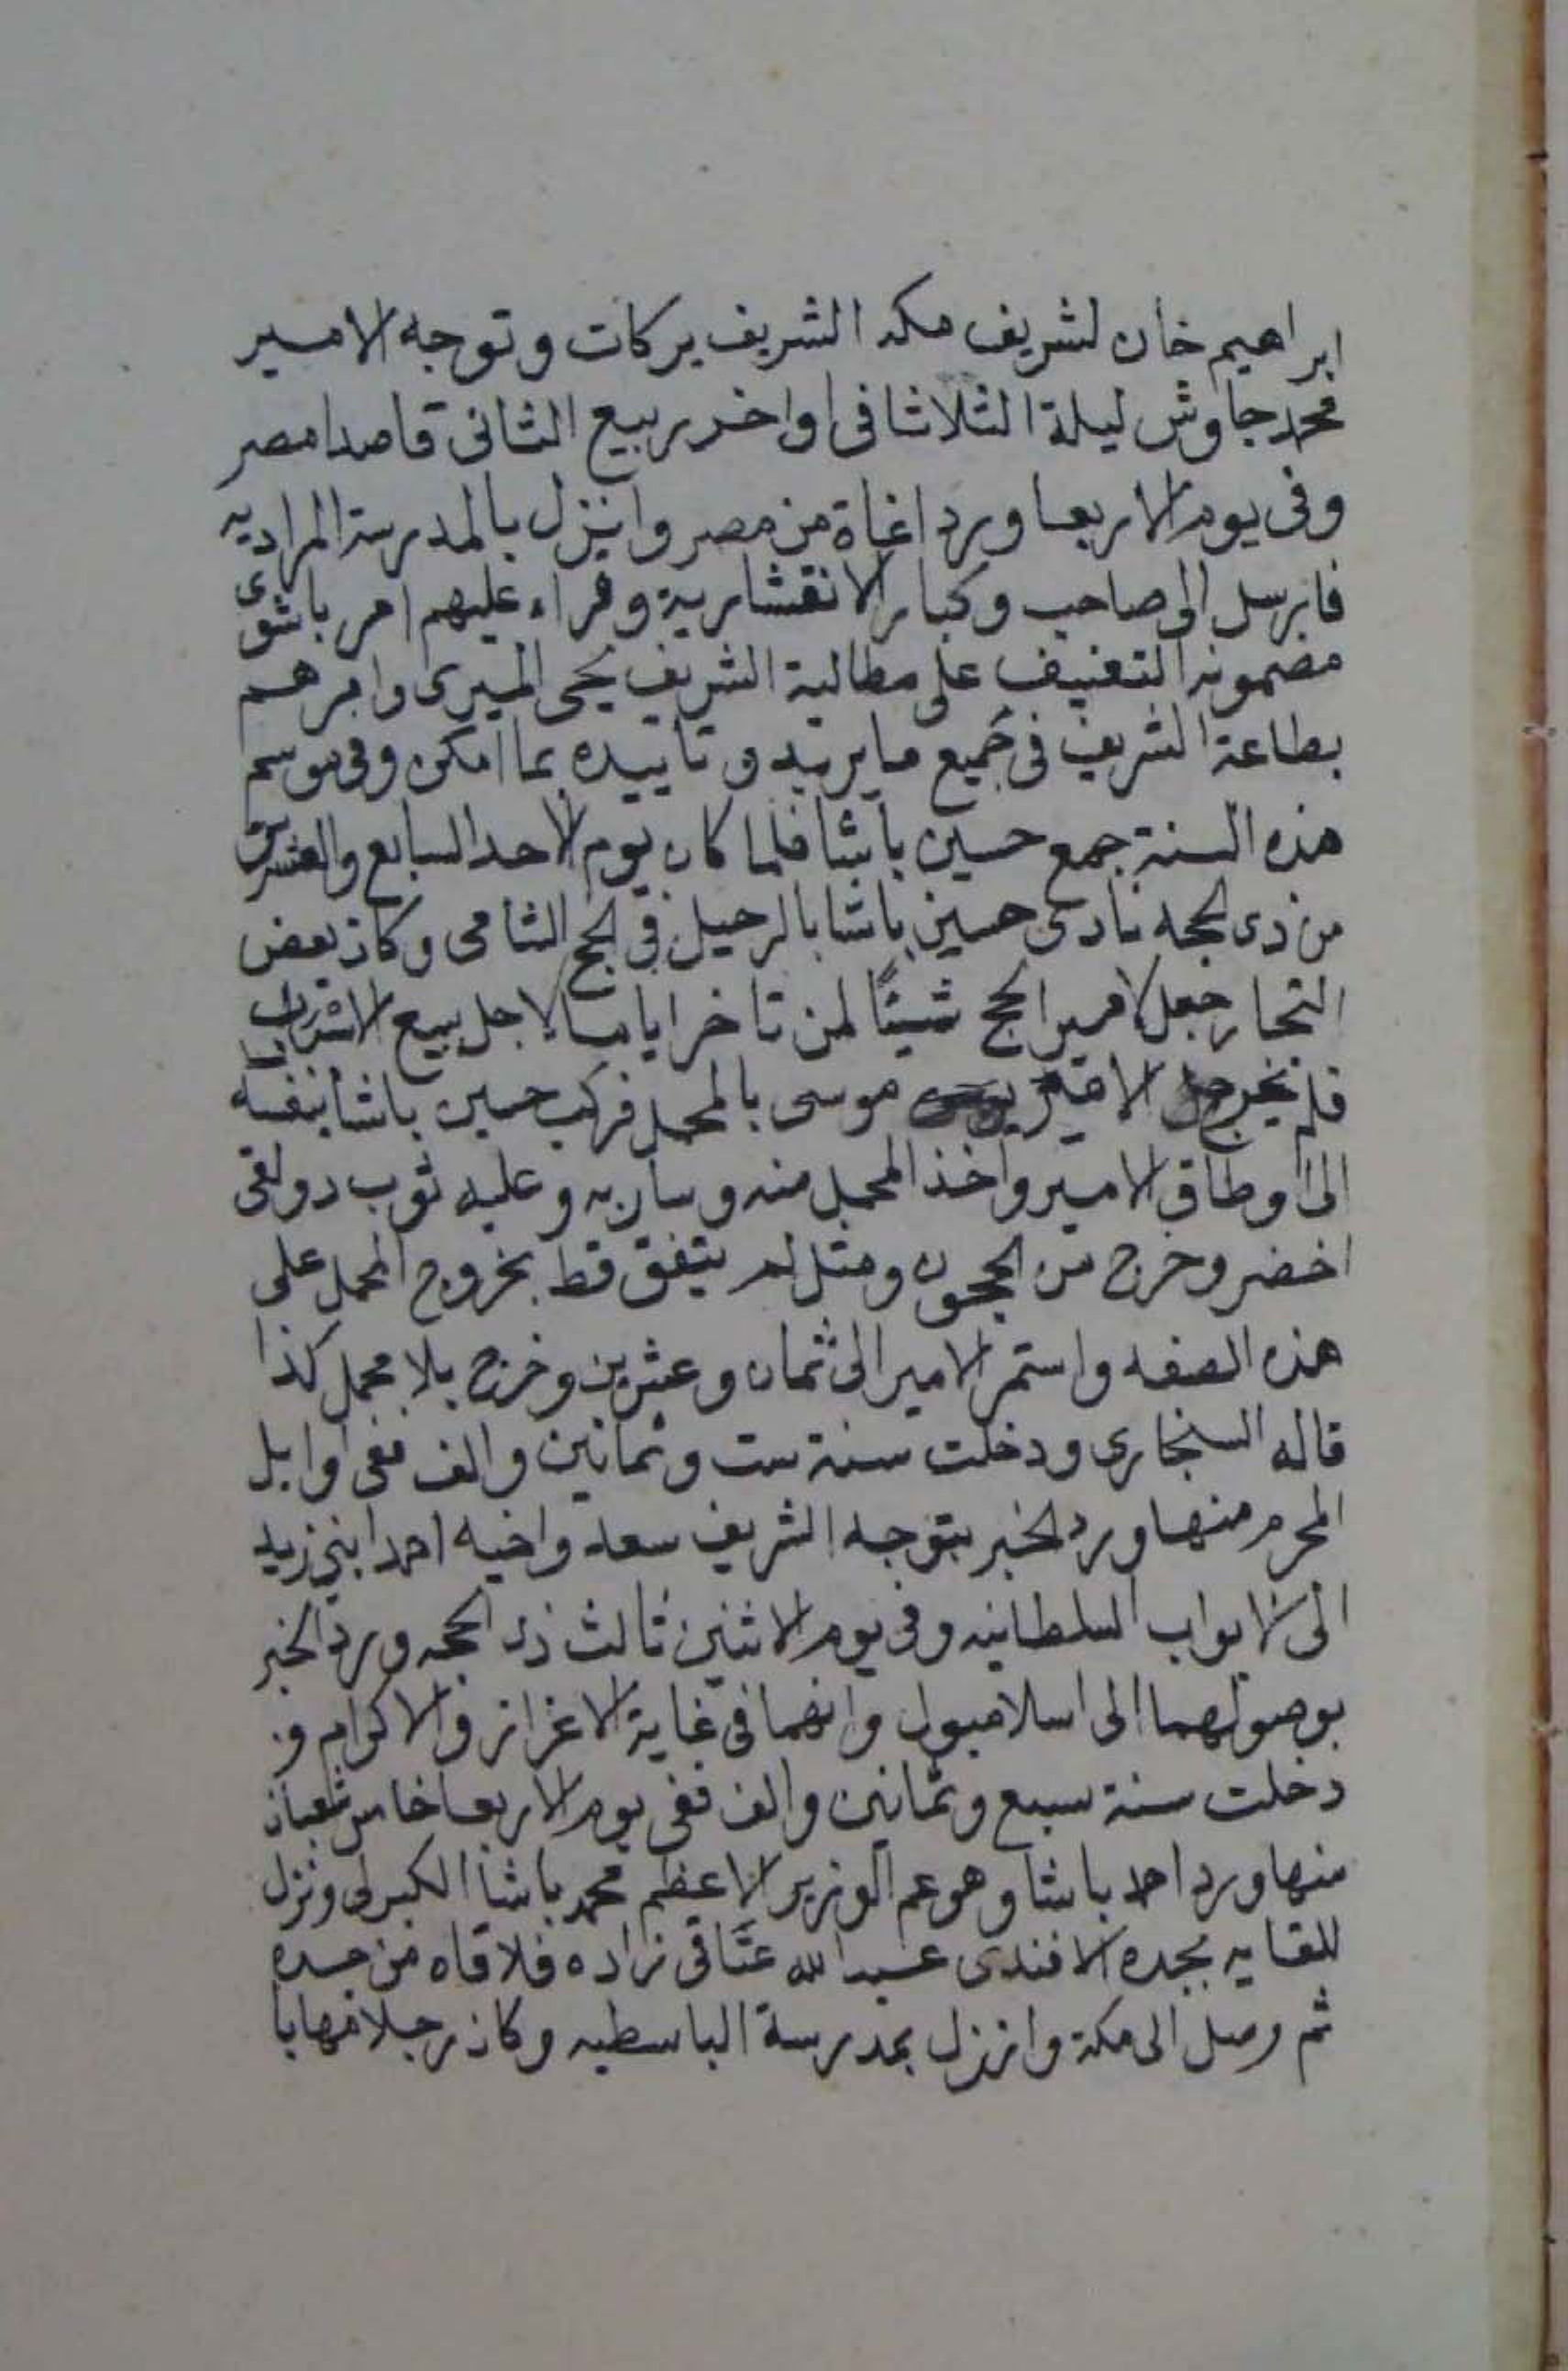 ابراهيم خان لشريف مكه الشريف بركات وتوجه الامير
محمد جاوش ليلة الثلاثا في اواخر ربيع الثاني قاصدا مصر
وفي يوم الاربعا ورد اغاة من مصر وانزل بالمدرسة المراديه
فارسل الى صاحب وكبار الانقشارية وقراء عليهم امر باشوى
مضمونه التعنيف على مطالبة الشريف يحيى الميرى وامرهم
بطاعة الشريف في جميع ما يريد وتاييده بما امكن وفي موسم
هذه السنة جمع حسين باشا فلما كان يوم الاحد السابع والعشرين
من ذى الحجه نادى حسين باشا بالرحيل في الحج الشامى وكان بعض
التجار جعل لامير الحج شيئًا لمن تاخر اياما لاجل بيع
فلم يخرج الامير موسى بالمحمل فركب حسين باشا بنفسه
الى اوطاق الامير واخذ المحمل منه وسار به وعليه ثوب
اخضر وخرج من الحجون ومثل لم يتفق قط بخروج المحمل على
هذه الصفه واستمر الامير الى ثمان وعشرين وخرج بلا محمل كذا
قاله السنجارى ودخلت سنة ست وثمانين والف ففى اوايل
المحرم منها ورد الخبر بتوجه الشريف سعد واخيه احمد ابنى زيد
الى الابواب السلطانيه وفي يوم الاثنين ثالث ذى الحجه ورد الخبر
بوصولهما الى اسلامبول وانهما في غاية الاعزاز والاكرام و
دخلت سنة سبع وثمانين والف ففى يوم الاربعا خامس شعبان
منها ورد احمد باشا وهو عم الوزير الاعظم محمد باشا الكبرلى ونزل
للقايه بجده الافندى عبد الله عتاقى زاده فلاقاه من جده
ثم وصل الى مكة وانزل بمدرسة الباسطيه وكان رجلا مهابا